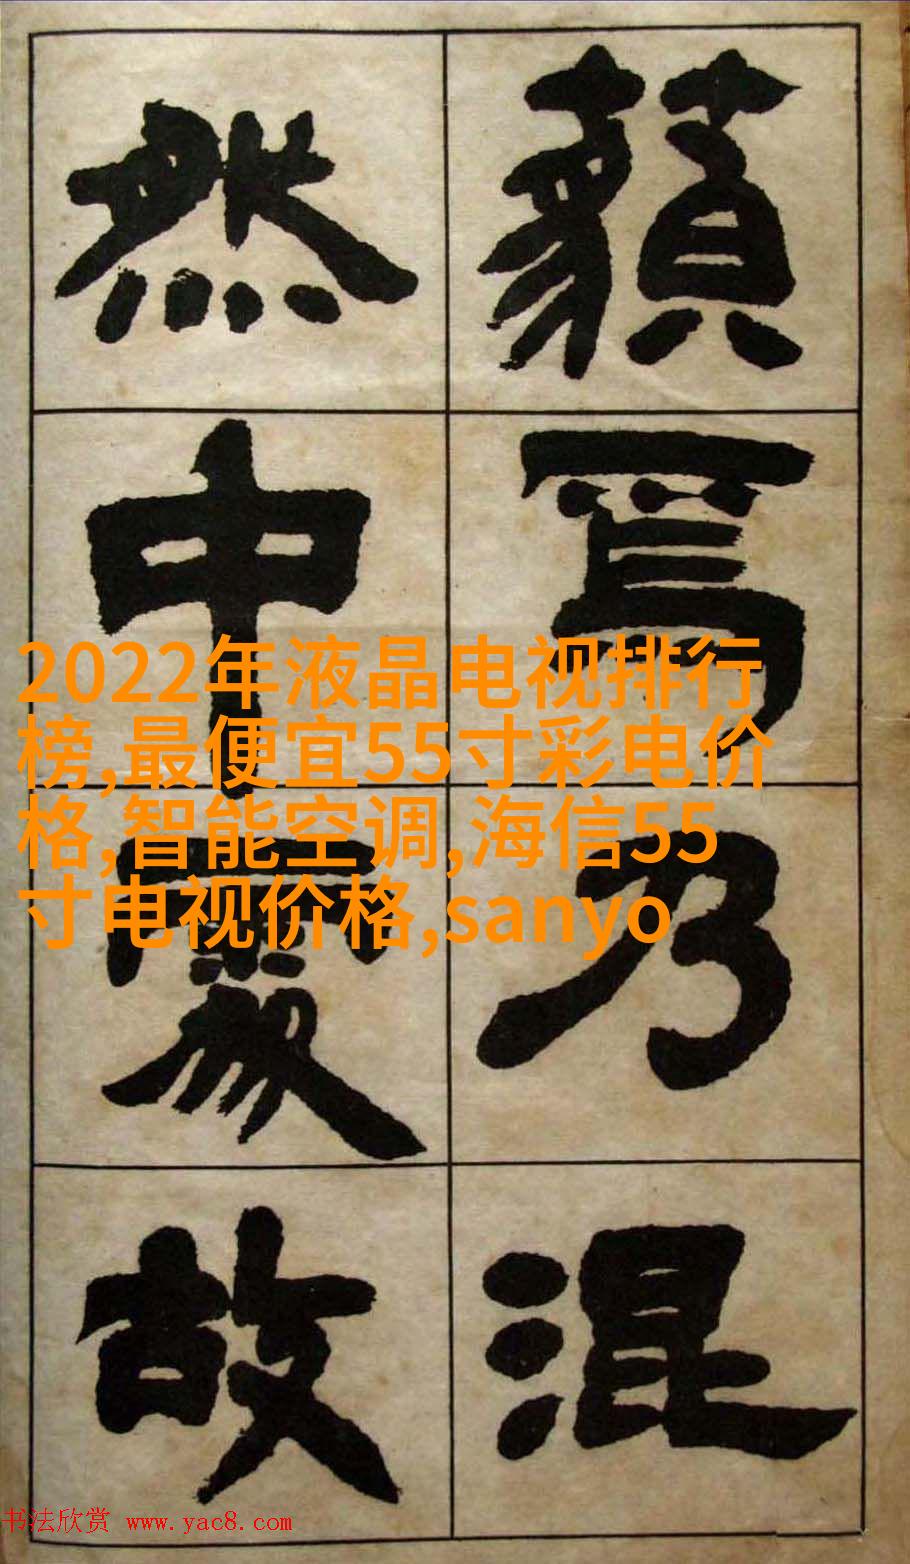 焉乃混
然中處故
2022年液晶电视排行
榜,最便宜55寸彩电价
格,智能空调,海信55
寸电视价格,sanyo
书法欣赏 www.yac8.com